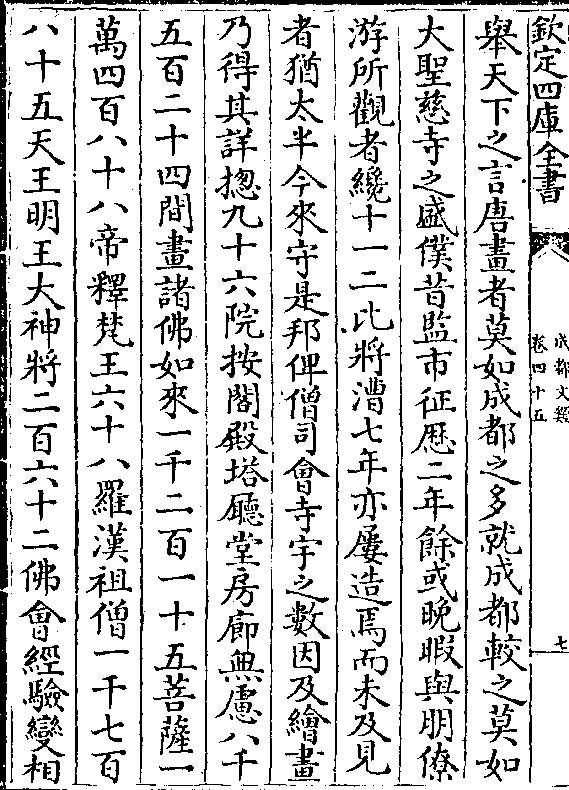 欽定四庫全書
成都文類
卷四十五
七
舉天下之言唐畫者莫如成都之多就成都較之莫如
大聖慈寺之盛僕昔監市征厯二年餘或晚暇與朋僚
游所觀者纔十一二比將漕七年亦屢造焉而未及見
者猶太半今來守是邦俾僧司會寺宇之數因及繪畫
乃得其詳揔九十六院按閣殿塔廳堂房廊無慮八千
五百二十四間畫諸佛如來一千二百一十五菩薩一
萬四百八十八帝釋梵王六十八羅漢祖僧一千七百
八十五天王明王大神將二百六十二佛會經驗變相